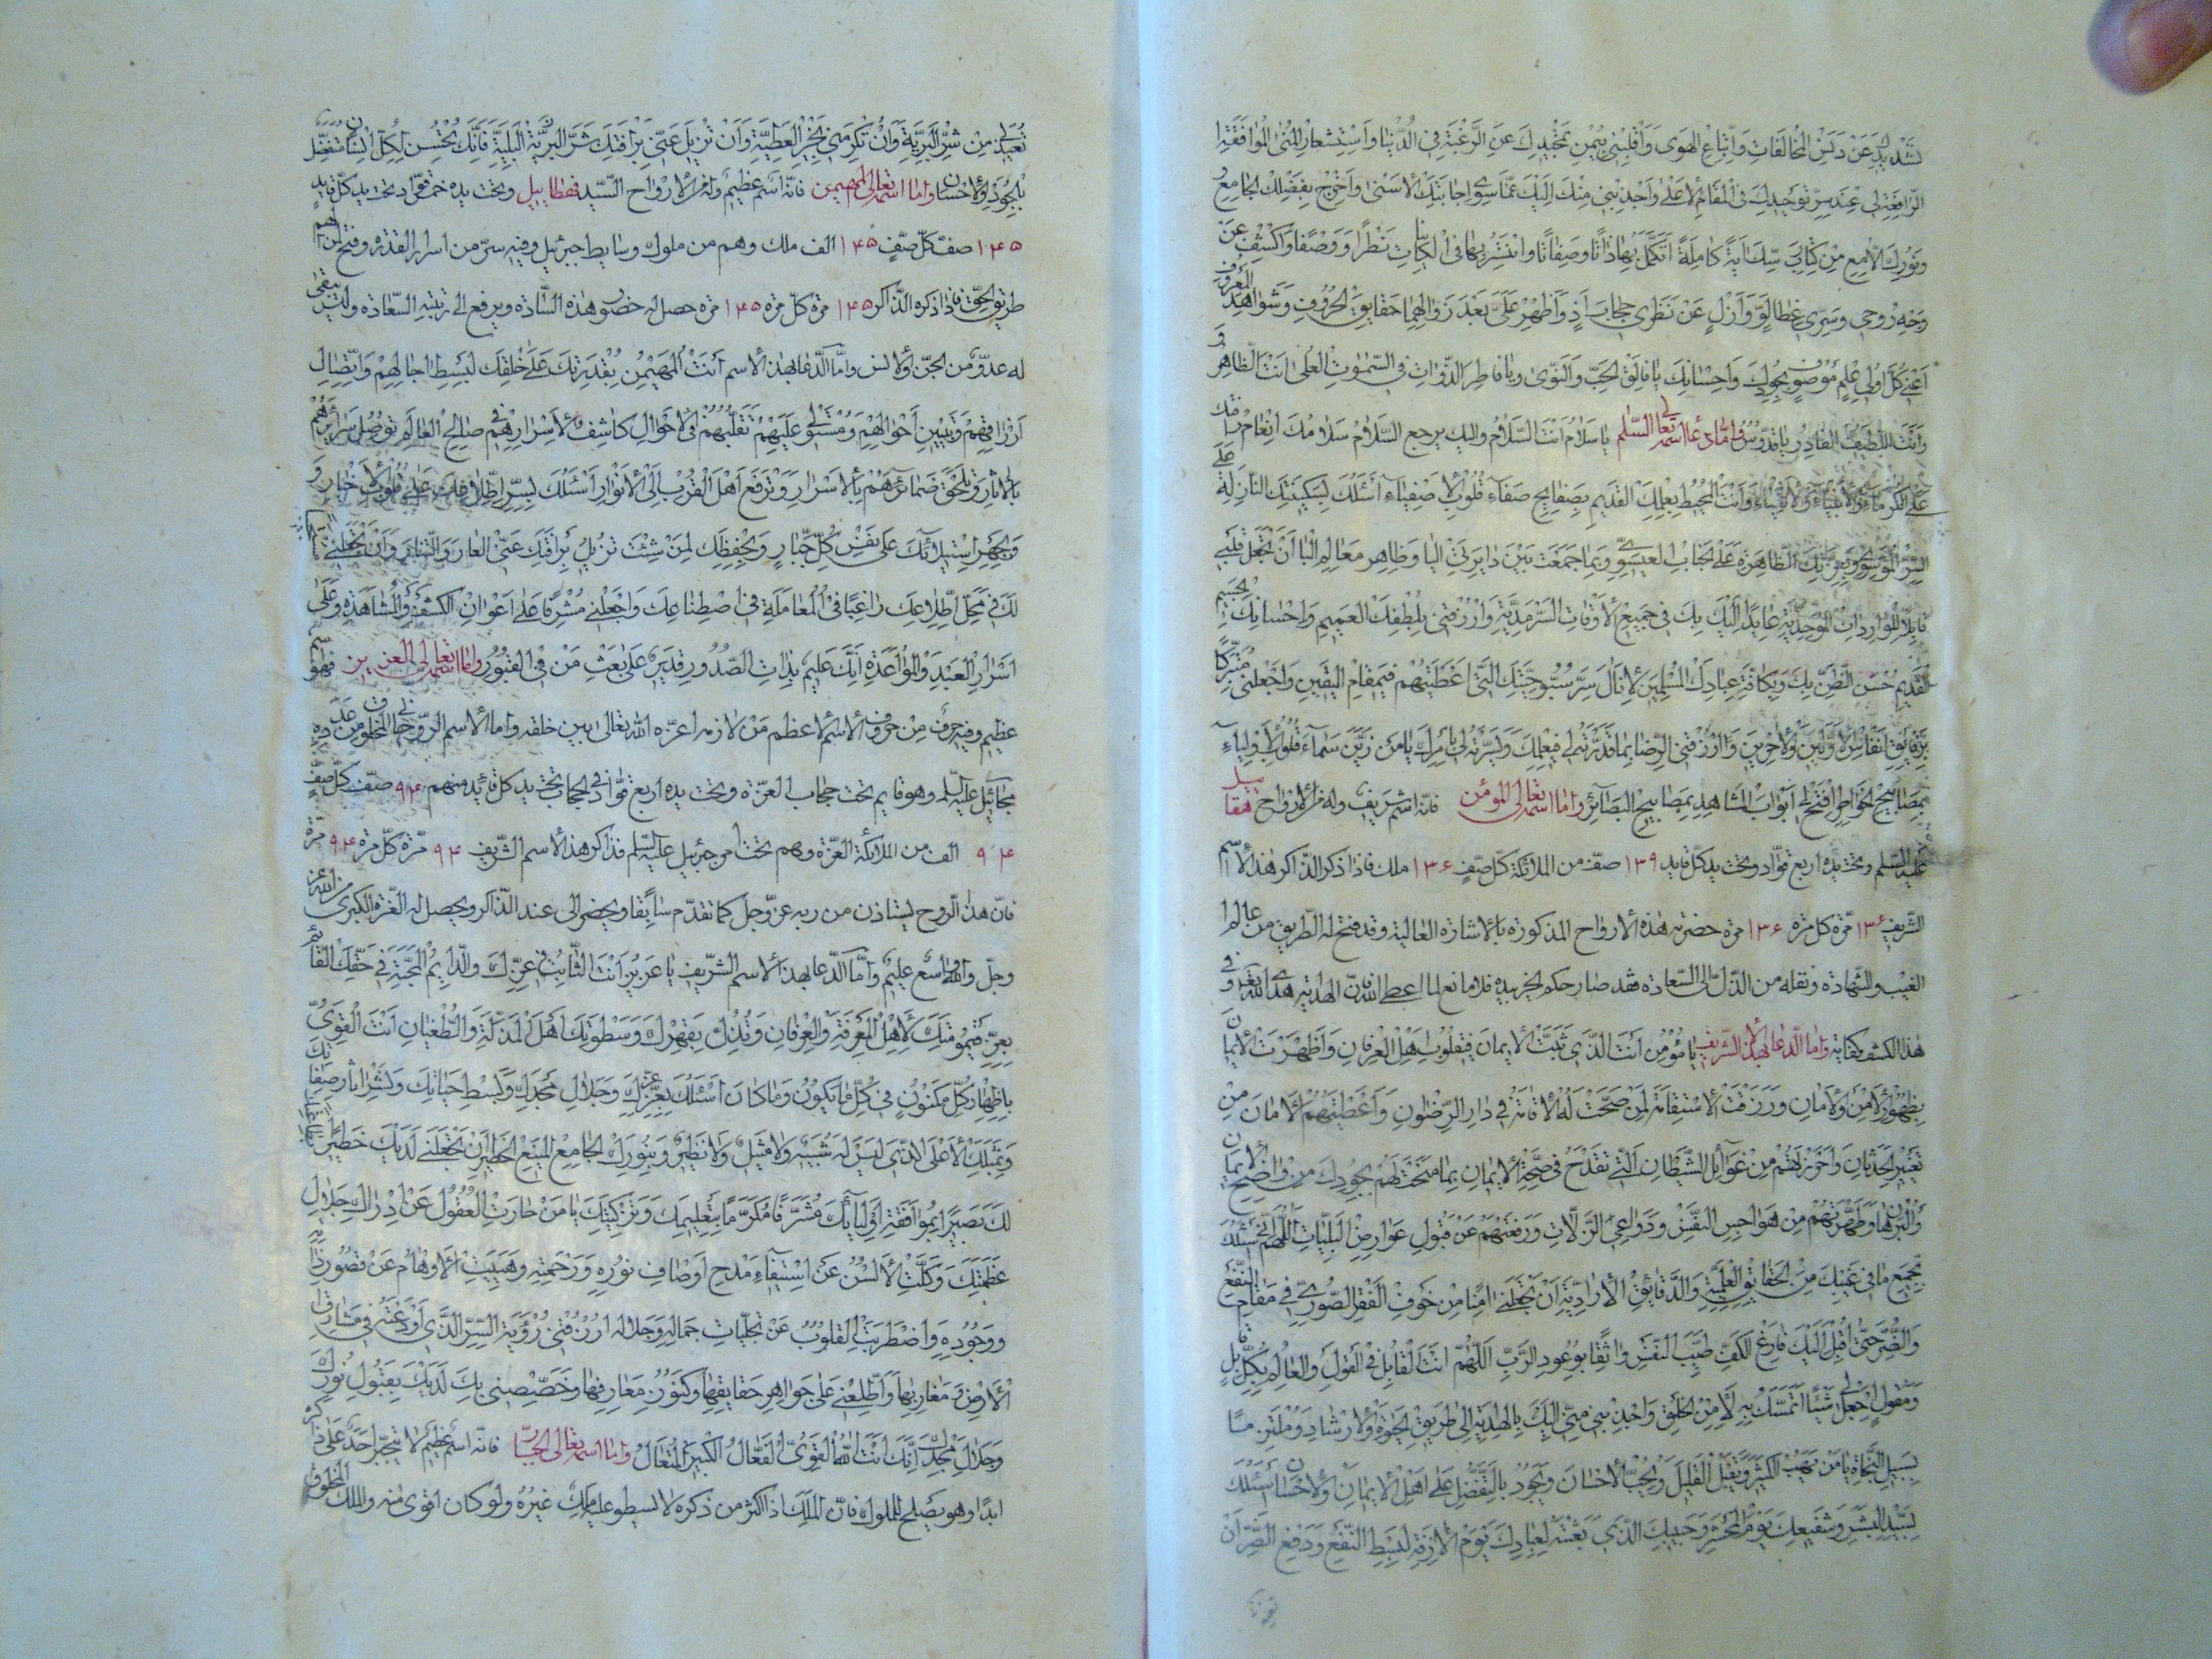 تشديدك عن دنس المخالفات واتباع الهوى واقلبني بيمن تمجيدك عن الرغبة في الدنيا واستشعار المنى الموافقة
الرافعة لي عند سر توحيدك في المقام الاعلى واجذبني منك اليك عما سوى اجابتك الاسنى واخرج بفضلك الجامع
ونورك اللامع من كتابي سرك اية كاملة اتكمل بها ذاتا وصفاتا وانتشر بها في الكاينات نظرا ووصفا واكشف عن
وجه روحي وسري غطا لو وازل عن نظري حجاب اذ واظهر علي بعد زوالهما حقايق الحروف وشواهد المعروف
اغني كل اولي علم موصوف بجودك واحسانك يا فالق الحب والنوى ويا فاطر الذوات في السموات العلى انت الظاهر
وانت اللطيف القادر يا قدوس واما دعا اسمه تعالى السلم يا سلام انت السلام واليك يرجع السلام سلامك انعام
على الكرماء والانبياء والاتقياء وانت المحيط بعلمك القديم بصفايح صفاء قلوب الاصفياء اسئلك بسكينتك النازلة على
السر الموسوي وبعزتك الظاهرة على الجناب العيسوي وبما جمعت بين دايرتي اليا وظاهر معالم البا ان تجعل قلبي
قابلا للواردات الموحدية عايدا اليك بك في جميع الاوقات السرمدية وارزقني بلطفك العميم واحسانك
القديم حسن الظن بك وبكافة عبادك المسلمين لانال سر سبوحيتك التي اعطيتهم في مقام اليقين واجعلني متبركا
برقايق انفاس الاولين والاخرين وارزقني الرضا بما قدرته لي في علمك ويسرته لي بامرك يا من زين سماء قلوب الاولياء
بمصابيح الخواطر افتح لي ابواب المشاهد بمصابيح البصائر واما اسمه تعالى المؤمن فانه اسم شريف وله من الارواح
عليه السلم وتحت يده اربع قواد وتحت يد كل قايد ١٣٩ صف من الملائكة كل صف ١٣٦ ملك فاذا ذكر الذاكر هذا الاسم
الشريف ١٣٦ مرة كل مرة ١٣٦ مرة حضرته هذه الارواح المذكورة بالاشارة العالية وقد فتح له الطريق من عالم
الغيب والشهادة ونقله من الذل الى السعادة فقد صار حكم الخير بيده فلا مانع لما اعطى الله فان الهداية هدى الله تعالى وفي
هذا الكشف كفاية واما الدعا بهذا الاسم الشريف يا مؤمن انت الذي ثبت الايمان في قلوب اهل العرفان واظهرت الايمان
بظهور الامن والامان ورزقت الاستقامة لمن صحت له الاقامة في دار الرضوان واعطيتهم الامان من
تغيير الحدثان واحرزتهم من غوائل الشيطان التي تقدح في صحة الايمان بما منحت لهم بجودك من واضح الايمان
والبرهان وطهرتهم من هواجس النفس ودواعي الزلات ورفعتهم عن قبول عوارض البليات اللهم اني اسئلك
بجميع ما في غيبك من الحقايق العلمية والدقائق الارادية ان تجعلني امنا من خوف الفقر الصوري في مقام النفع
والضر حتى اقبل اليك فارغ الكف طيب النفس واثقا بوعود الرب اللهم انت القابل في القول والعالم بكل قابل
ومقول اجعل لي شيئا اتمسك به لا من الخلق واجذبني مني اليك بالهداية الى طريق الحيوة والارشاد وملتزما
بسبيل النجاة يا من يهب الكثير ويقبل القليل ويحب الاحسان ويجود بالتفضل على اهل الايمان والاحسان اسئلك
بسيد البشر وشفيعك يوم المحشر وحبيبك الذي بعثته لعبادك يوم الازفة لبسط النفع ودفع الضر ان
تعيذني من شر البرية وان تكرمني بخير العطية وان تزيل عني برافتك شر البرية البلية فانك تحسن لكل انسان متفضل
بالجود والاحسان واما اسمه تعالى المهيمن فانه اسم عظيم وله من الارواح السيد فقطاييل وتحت يده خمس قواد تحت يد كل قايد
١٤٥ صف كل صف ١٤٥ الف ملك وهم من ملوك وسايط جبرئيل وفيه سر من اسرار القدرة وفتح لمن
طريق الحق فاذا ذكره الذاكر ١٤٥ مرة كل مرة ١٤٥ مرة حصل له حضور هذه السادة ويرفع الى رتبة السعادة وليس يبقى
له عدو من الجن والانس واما الدعا بهذا الاسم انت المهيمن بقدرتك على خلقك لبسط اجالهم واتصال
ارزاقهم وتبيين احوالهم ومستولي عليهم تقلبهم في الاحوال كاشف لاسرارهم في صالح العالم توصل سرائرهم
بالاثار وتلحق ضمائرهم بالاسرار وترفع اهل القرب الى الانوار اسئلك بسر اطلاعك على قلوب الاخيار و
وبجهر استيلائك على نفس كل جبار وبحفظك لمن شئت تزيل برافتك عني العار والشنار وان تجعلني
لك في محل اطلاعك راغبا في المعاملة في اصطناعك واجعلني مشرفا على اعوان الكشف والمشاهدة وعلى
اسرار العبيد والمواعدة انك عليم بذات الصدور قدير على بعث من في القبور واما اسمه تعالى العزيز فهو اسم
عظيم وفيه حرف من حروف الاسم الاعظم من لازمه اعزه الله تعالى بين خلقه واما الاسم الروحاني المخلوق من عدده
عليه السلم وهو قايم تحت حجاب العزة وتحت يده اربع قواد في الحجاب تحت يد كل قائد منهم ٩٤ صف كل صف
٩٤ الف من الملائكة العزة وهم تحت امر جبرئيل عليه السلم فذاكر هذا الاسم الشريف ٩٤ مرة كل مرة ٩٤ مرة
فان هذا الروح يستاذن من ربه عز وجل كما تقدم سابقا ويحضر الى عند الذاكر ويحصل له العزة الكبرى من الله عز
وجل والله واسع عليم واما الدعا بهذا الاسم الشريف يا عزيز انت الثابت في عزك والدايم المحبة في حقك القائم
بعز قيوميتك لاهل المعرفة والعرفان وتذل بقهرك وسطوتك اهل المذلة والطغيان انت القوي
باظهار كل مكنون في كل ما يكون وما كان اسئلك بعز عزك وجلال مجدك وبسط حياتك ونشر اثار صفاتك
وبمثلك الاعلى الذي ليس له شبيه ولا مثيل ولا نظير وبنورك الجامع المنيع الخطير ان تجعلني لديك خطيرا
لك بصيرا بموافقة اوليائك مشرفا مكرما بتعليمك وتزكيتك يا من حارت العقول عن ادراك جلال
عظمتك وكلت الالسن عن استيفاء مدح اوصاف نوره ورحمته وهيبت الاوهام عن قصور ذاته
ووجوده واضطربت القلوب عن تجليات جماله وجلاله ارزقني رؤية السر الذي اودعته في مشارق
الارض ومغاربها واطلعني على جواهر حقايقها وكنوز معارفها وخصصني بك لديك بقبول نورك
وجلال مجدك انك انت الله القوي الفعال الكبير المتعال واما اسمه تعالى الجبار فانه اسم عظيم لا يتجبر احد على ذاكره
ابدا وهو يصلح للملوك فان الملك اذا اكثر من ذكره لا يسطو عليه ملك غيره ولو كان اقوى منه والملك المخلوق